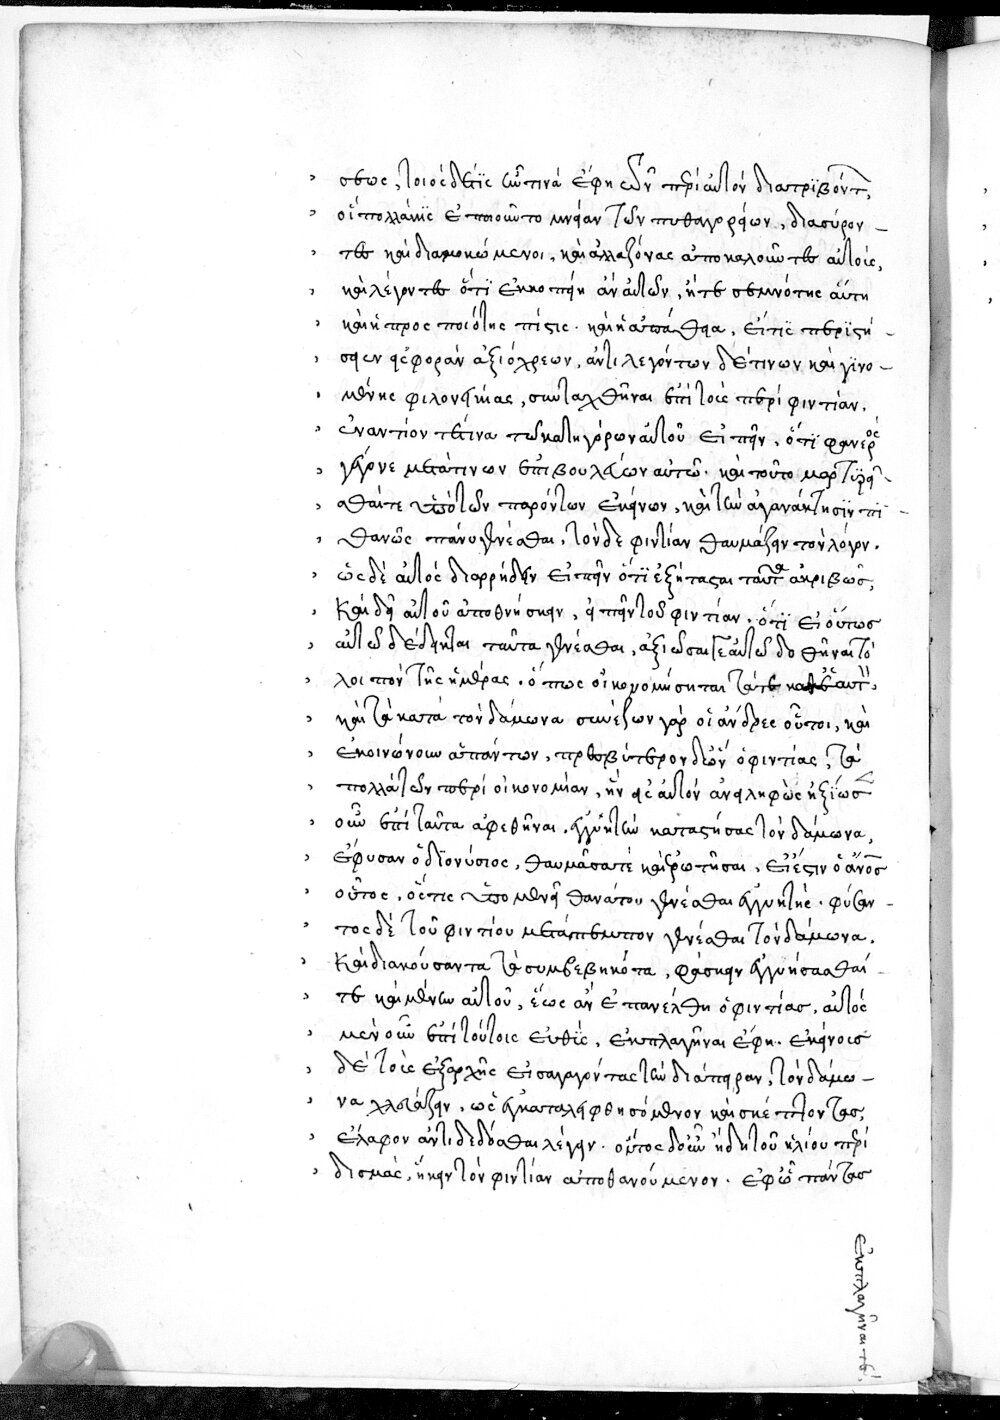 σεως, τοιόσδε τίς ὢν τινὰ ἔφη εἶναι τῶν περὶ αὐτὸν διατριβόντ,
οἳ πολλάκις ἐποιοῦντο μνείαν τῶν πυθαγορείων, διασύρον-
τες καὶ διαμωκώμενοι, καὶ ἀλαζόνας ἀποκαλοῦντες αὐτοὺς,
καὶ λέγοντες ὅτι ἐκκοπείη ἂν αὐτῶν, ἥτε σεμνότης αὕτη
καὶ ἡ προσποίητος πίστις. καὶ ἡ ἀπάθεια, εἴ τις περιστή-
σειεν εἰς φόβον ἀξιόχρεων, ἀντιλεγόντων δέ τινων καὶ γινο-
μένης φιλονεικίας, συνταχθῆναι ἐπὶ τοὺς περὶ φιντίαν,
ἐναντίον τέ τινα τῶν κατηγόρων αὐτοῦ εἰπεῖν, ὅτι φανερὸς
γέγονε μετά τινων ἐπιβουλεύων αὐτῷ. καὶ τοῦτο μαρτυρεῖ-
σθαί τε ὑπὸ τῶν παρόντων ἐκείνων, καὶ τὴν ἀγανάκτησιν πι-
θανῶς πάνυ γενέσθαι, τὸν δὲ φιντίαν θαυμάζειν τὸν λόγον.
ὡς δὲ αὐτὸς διαρρήδην εἰπεῖν ὅτι ἐξήτασται ταῦτα ἀκριβῶς,
καὶ δεῖ αὐτὸν ἀποθνήσκειν, εἰπεῖν τὸν φιντίαν, ὅτι εἰ οὕτως
αὐτῷ δέδοκται ταῦτα γενέσθαι, ἀξιῶσαί γε αὐτῷ δοθῆναι τὸ
λοιπὸν τῆς ἡμέρας. ὅπως οἰκονομήσηται τά τε καθ' ἑαυτὸν,
καὶ τὰ κατὰ τὸν δάμωνα συνέζων γὰρ οἱ ἄνδρες οὗτοι, καὶ
ἐκοινώνουν ἁπάντων, πρεσβύτερον δ' ὢν ὁ φιντίας, τὰ
πολλὰ τῶν περὶ οἰκονομίαν, ἦν εἰς αὑτὸν ἀνειληφὼς ἠξίωσεν
οὖν ἐπὶ ταῦτα ἀφεθῆναι. ἐγγυητὴν καταστήσας τὸν δάμωνα,
ἔφησεν ὁ διονύσιος, θαυμάσαι τὲ καὶ ἐρωτῆσαι, εἰ ἔστιν ὁ ἄνος
οὗτος, ὅστις ὑπομενεῖ θανάτου γενέσθαι ἐγγυητής. φήσαν-
τος δὲ τοῦ φιντίου μετάπεμπτον γενέσθαι τὸν δάμωνα.
καὶ διακούσαντα τὰ συμβεβηκότα, φάσκειν ἐγγυήσασθαί
τε καὶ μένειν αὐτοῦ, ἕως ἂν ἐπανέλθη ὁ φιντίας, αὐτὸς
μὲν οὖν ἐπὶ τούτοις εὐθὺς, ἐκπλαγῆναι ἔφη. ἐκείνους
δὲ τοὺς ἐξαρχῆς εἰσαγαγόντας τὴν διάπειραν, τὸν δάμω-
να χλευάζειν, ὡς ἐγκαταλειφθησόμενον καὶ σκώπτοντας,
ἔλαφον ἀντιδεδόσθαι λέγειν. οὕτως δ' οὖν ἤδη τοῦ ἡλίου περὶ
δυσμὰς, ἥκειν τὸν φιντίαν ἀποθανούμενον. ἐφ' ᾧ πάντας
ἐκπλαγῆναι τε